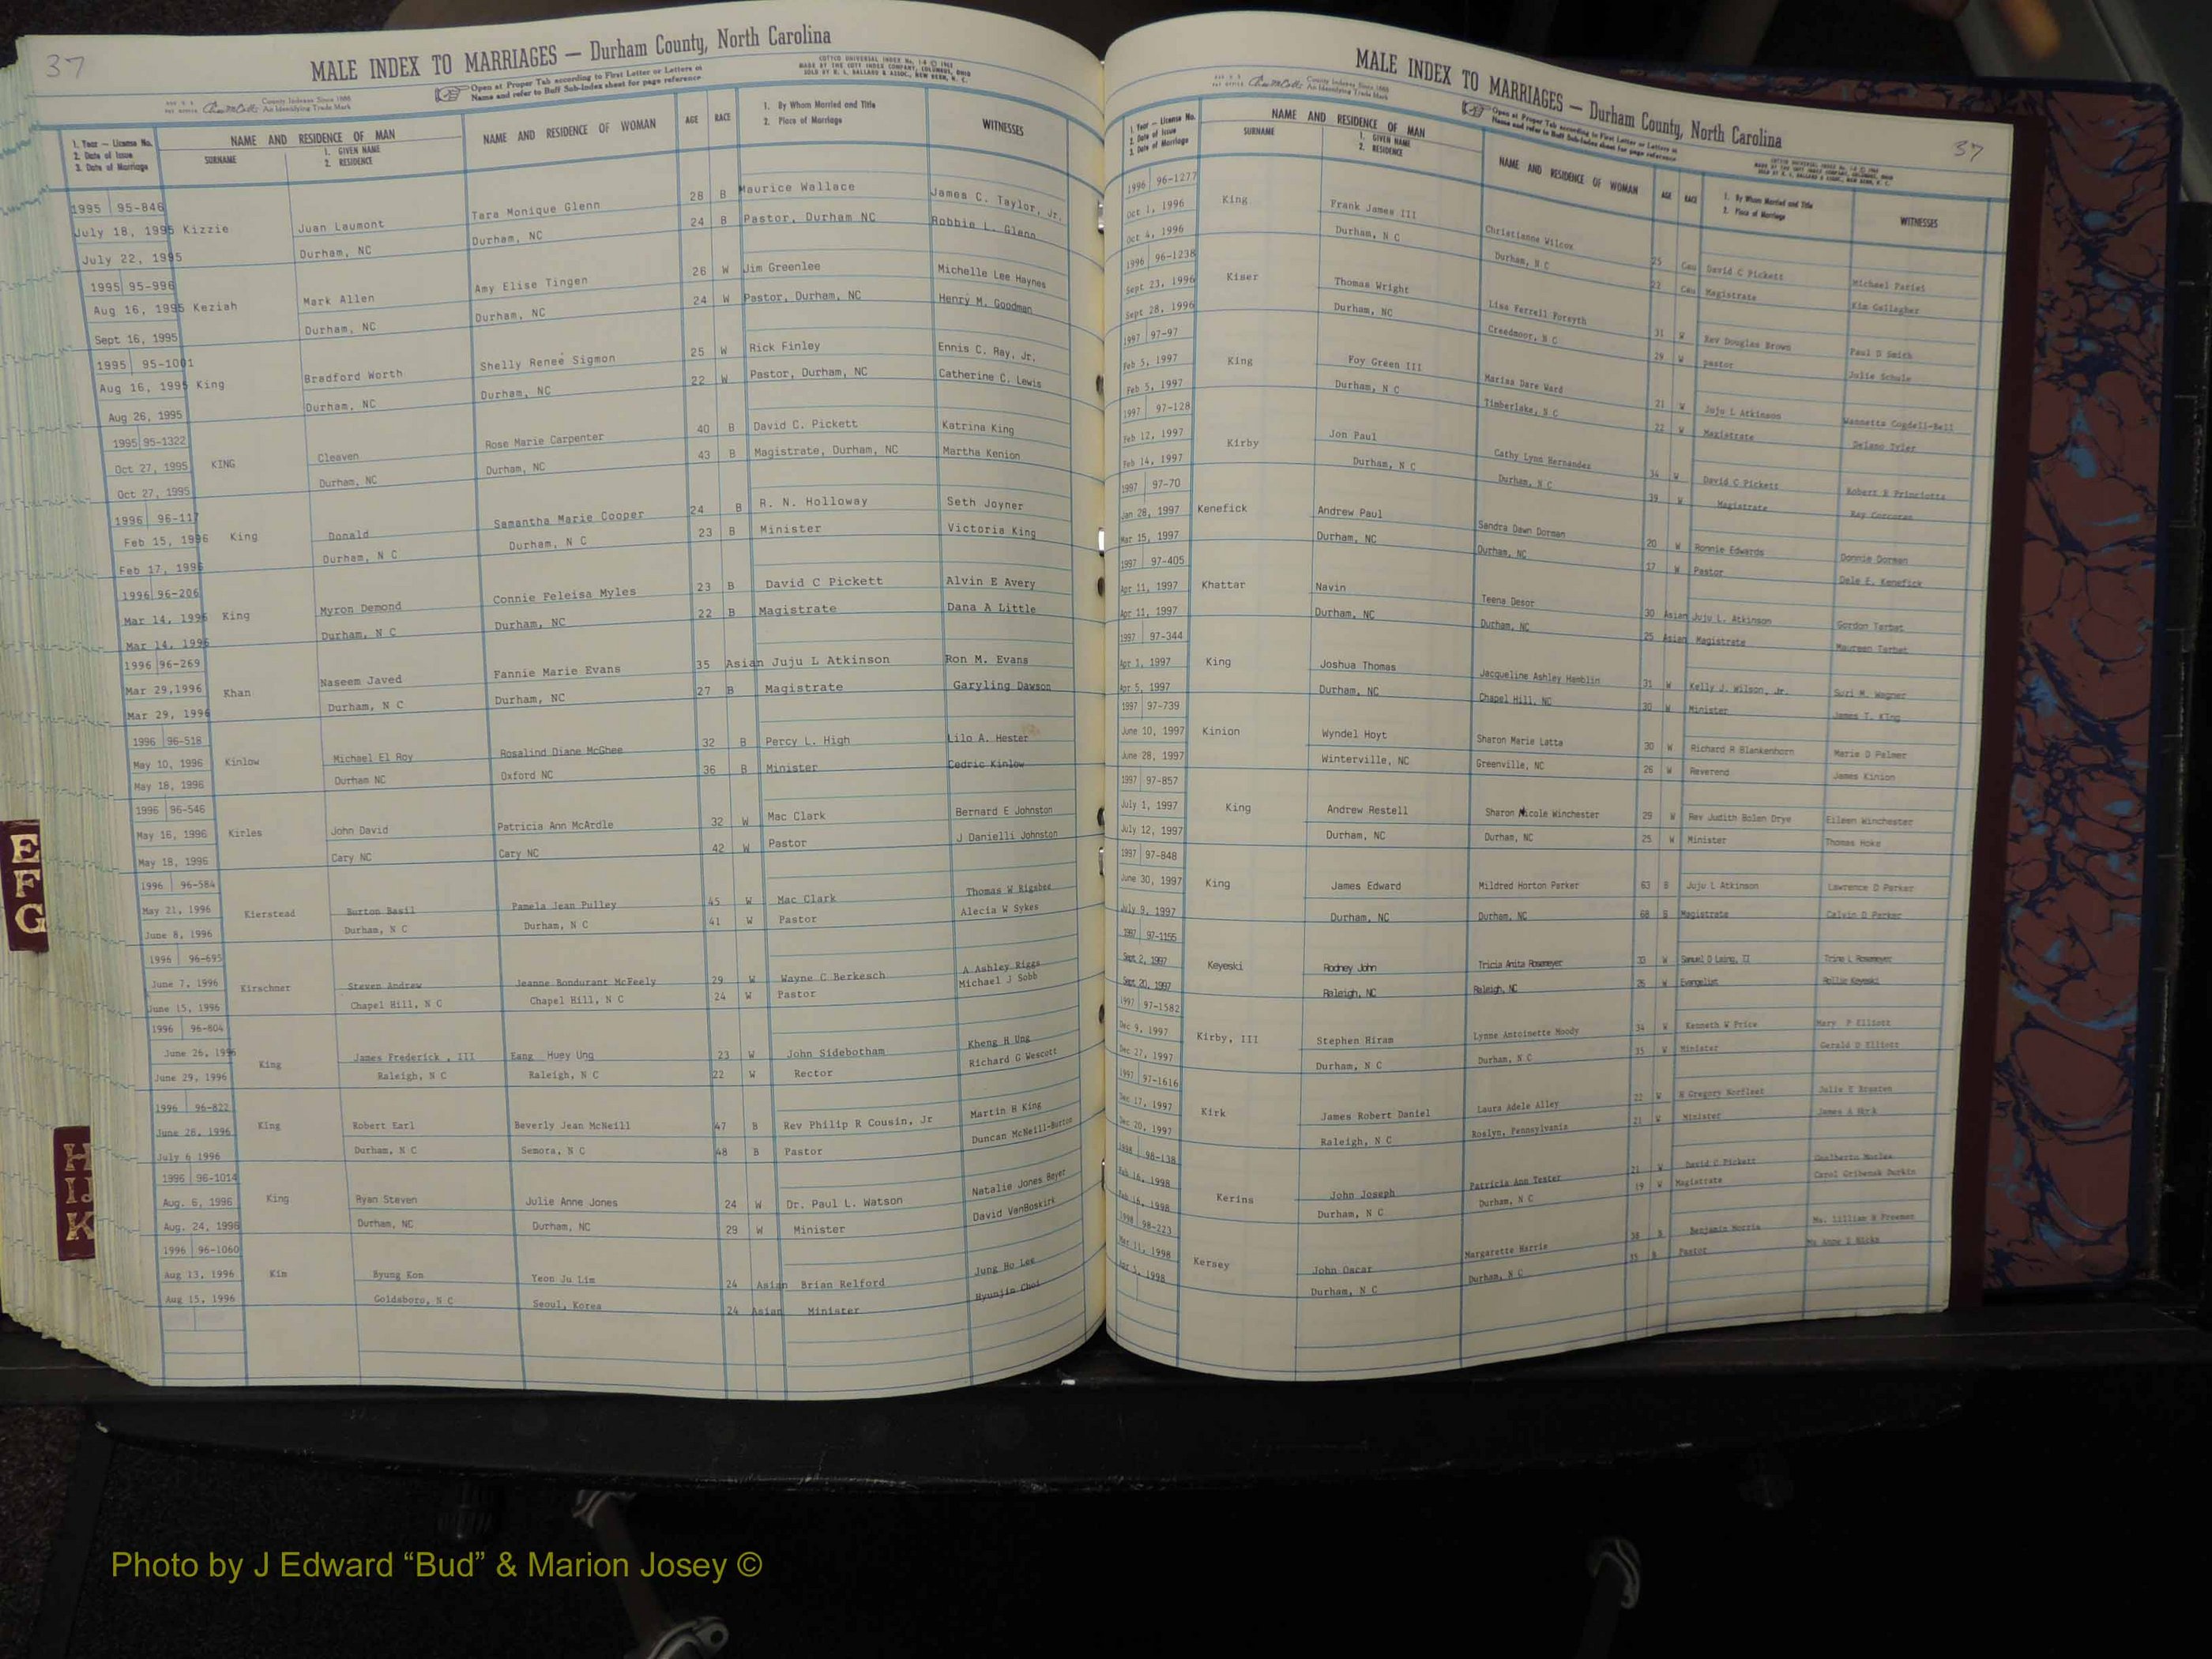 37
MALE INDEX TO MARRIAGES — Durham County, North Carolina
Open at Proper Tab according to First Letter or Letters of
Name and refer to Buff Sub-Index sheet for page reference
COTTCO UNIVERSAL INDEX
MADE BY THE COTT INDEX COMPANY, COLUMBUS, OHIO
SOLD BY O. G. BALLARD & ASSOC., NEW BERN, N. C.
County Indexes Since 1888
An Identifying Trade Mark
1. Year — License No.
2. Date of Issue
3. Date of Marriage
NAME AND RESIDENCE OF MAN
SURNAME
1. GIVEN NAME
2. RESIDENCE
NAME AND RESIDENCE OF WOMAN
AGE RACE
1. By Whom Married and Title
2. Place of Marriage
WITNESSES
1995 95-846 28 B Maurice Wallace James C. Taylor, Jr.
July 18, 1995 Kizzie Juan Laumont Tara Monique Glenn 24 B Pastor, Durham NC Robbie L. Glenn
July 22, 1995 Durham, NC Durham, NC
1995 95-996 Amy Elise Tingen 26 W Jim Greenlee Michelle Lee Haynes
Aug 16, 1995 Keziah Mark Allen Durham, NC 24 W Pastor, Durham, NC Henry M. Goodman
Sept 16, 1995 Durham, NC
1995 95-1001 Shelly Renee Sigmon 25 W Rick Finley Ennis C. Ray, Jr.
Aug 16, 1995 King Bradford Worth Durham, NC 22 W Pastor, Durham, NC Catherine C. Lewis
Aug 26, 1995 Durham, NC
1995 95-1322 Rose Marie Carpenter 40 B David C. Pickett Katrina King
Oct 27, 1995 KING Cleaven Durham, NC 43 B Magistrate, Durham, NC Martha Kenion
Oct 27, 1995 Durham, NC
1996 96-117 Samantha Marie Cooper 24 B R. N. Holloway Seth Joyner
Feb 15, 1996 King Donald Durham, N C 23 B Minister Victoria King
Feb 17, 1996 Durham, N C
1996 96-206 Connie Feleisa Myles 23 B David C Pickett Alvin E Avery
Mar 14, 1996 King Myron Demond Durham, NC 22 B Magistrate Dana A Little
Mar 14, 1996 Durham, N C
1996 96-269 Fannie Marie Evans 35 Asian Juju L Atkinson Ron M. Evans
Mar 29,1996 Khan Naseem Javed Durham, NC 27 B Magistrate Garyling Dawson
Mar 29, 1996 Durham, N C
1996 96-518 Rosalind Diane McGhee 32 B Percy L. High Lilo A. Hester
May 10, 1996 Kinlow Michael El Roy Oxford NC 36 B Minister Cedric Kinlow
May 18, 1996 Durham NC
1996 96-546 Patricia Ann McArdle 32 W Mac Clark Bernard E Johnston
May 16, 1996 Kirles John David Cary NC 42 W Pastor J Danielli Johnston
May 18, 1996 Cary NC
1996 96-584 Pamela Jean Pulley 45 W Mac Clark Thomas W Rigsbee
May 21, 1996 Kierstead Burton Basil Durham, N C 41 W Pastor Alecia W Sykes
June 8, 1996 Durham, N C
1996 96-695 Jeanne Bondurant McFeely 29 W Wayne C Berkesch A Ashley Riggs
June 7, 1996 Kirschner Steven Andrew Chapel Hill, N C 24 W Pastor Michael J Sobb
June 15, 1996 Chapel Hill, N C
1996 96-804 Kheng H Ung
June 26, 1996 King James Frederick , III Eang Huey Ung 23 W John Sidebotham Richard G Wescott
June 29, 1996 Raleigh, N C Raleigh, N C 22 W Rector
1996 96-822 Martin H King
June 28, 1996 King Robert Earl Beverly Jean McNeill 47 B Rev Philip R Cousin, Jr Duncan McNeill-Burton
July 6 1996 Durham, N C Semora, N C 48 B Pastor
1996 96-1014 Natalie Jones Bayer
Aug. 6, 1996 King Ryan Steven Julie Anne Jones 24 W Dr. Paul L. Watson David VanBoskirk
Aug. 24, 1996 Durham, NC Durham, NC 29 W Minister
1996 96-1060 Jung Ho Lee
Aug 13, 1996 Kim Byung Kon Yeon Ju Lim 24 Asian Brian Relford Hyunjin Choi
Aug 15, 1996 Goldsboro, N C Seoul, Korea 24 Asian Minister
MALE INDEX TO MARRIAGES — Durham County, North Carolina
37
County Indexes Since 1888
An Identifying Trade Mark
Open at Proper Tab according to First Letter or Letters of
Name and refer to Buff Sub-Index sheet for page reference
1. Year — License No.
2. Date of Issue
3. Date of Marriage
NAME AND RESIDENCE OF MAN
SURNAME
1. GIVEN NAME
2. RESIDENCE
NAME AND RESIDENCE OF WOMAN
AGE RACE
1. By Whom Married and Title
2. Place of Marriage
WITNESSES
1996 96-1277
Oct 1, 1996 King Frank James III Christianne Wilcox 25 Cau David C Pickett Michael Pariei
Oct 4, 1996 Durham, N C Durham, N C 22 Cau Magistrate Kim Gallagher
1996 96-1238
Sept 23, 1996 Kiser Thomas Wright Lisa Ferrell Forsyth 31 W Rev Douglas Brown Paul D Smith
Sept 28, 1996 Durham, NC Creedmoor, N C 29 W pastor Julie Schule
1997 97-97
Feb 5, 1997 King Foy Green III Marisa Dare Ward 21 W Juju L Atkinson Wannetta Cogdell-Bell
Feb 5, 1997 Durham, N C Timberlake, N C 22 W Magistrate Delano Tyler
1997 97-128
Feb 12, 1997 Kirby Jon Paul Cathy Lynn Hernandez 34 W David C Pickett Robert H Princiotta
Feb 14, 1997 Durham, N C Durham, N C 39 W Magistrate Ray Corcoran
1997 97-70
Jan 28, 1997 Kenefick Andrew Paul Sandra Dawn Dorman 20 W Ronnie Edwards Donnie Dorman
Mar 15, 1997 Durham, NC Durham, NC 17 W Pastor Dale E. Kenefick
1997 97-405
Apr 11, 1997 Khattar Navin Teena Desor 30 Asian Juju L. Atkinson Gordon Tarbet
Apr 11, 1997 Durham, NC Durham, NC 25 Asian Magistrate Maureen Tarbet
1997 97-344
Apr 1, 1997 King Joshua Thomas Jacqueline Ashley Hamblin 31 W Kelly J. Wilson, Jr. Suzi M. Wagner
Apr 5, 1997 Durham, NC Chapel Hill, NC 30 W Minister James T. King
1997 97-739
June 10, 1997 Kinion Wyndel Hoyt Sharon Marie Latta 30 W Richard R Blankenhorn Marie D Palmer
June 28, 1997 Winterville, NC Greenville, NC 26 W Reverend James Kinion
1997 97-857
July 1, 1997 King Andrew Restell Sharon Nicole Winchester 29 W Rev Judith Bolen Drye Eileen Winchester
July 12, 1997 Durham, NC Durham, NC 25 W Minister Thomas Hoke
1997 97-848
June 30, 1997 King James Edward Mildred Horton Parker 63 B Juju L Atkinson Lawrence D Parker
July 9, 1997 Durham, NC Durham, NC 68 B Magistrate Calvin D Parker
1997 97-1155
Sept 2, 1997 Keyeski Rodney John Tricia Anita Rosemeyer 33 W Samuel D Laing, II Trine L Rosemeyer
Sept 20, 1997 Raleigh, NC Raleigh, NC 26 W Evangelist Rollie Keyeski
1997 97-1582
Dec 9, 1997 Kirby, III Stephen Hiram Lynne Antoinette Moody 34 W Kenneth W Price Mary P Elliott
Dec 27, 1997 Durham, N C Durham, N C 35 W Minister Gerald D Elliott
1997 97-1616
Dec 17, 1997 Kirk James Robert Daniel Laura Adele Alley 22 W N Gregory Norfleet Julie E
Dec 20, 1997 Raleigh, N C Roslyn, Pennsylvania 21 W Minister James A
1998 98-138
Feb 16, 1998 Kerins John Joseph Patricia Ann Tester 21 W David C Pickett
Feb 16, 1998 Durham, N C Durham, N C 19 W Magistrate Carol Gribenak Durkin
1998 98-223
Mar 11, 1998 Kersey John Oscar Margarette Harris B Benjamin Morris Ms. Lillian B Freeman
Apr 5, 1998 Durham, N C Durham, N C 35 B Pastor Ms Anne
E
F
G
H
IJ
K
Photo by J Edward “Bud” & Marion Josey ©